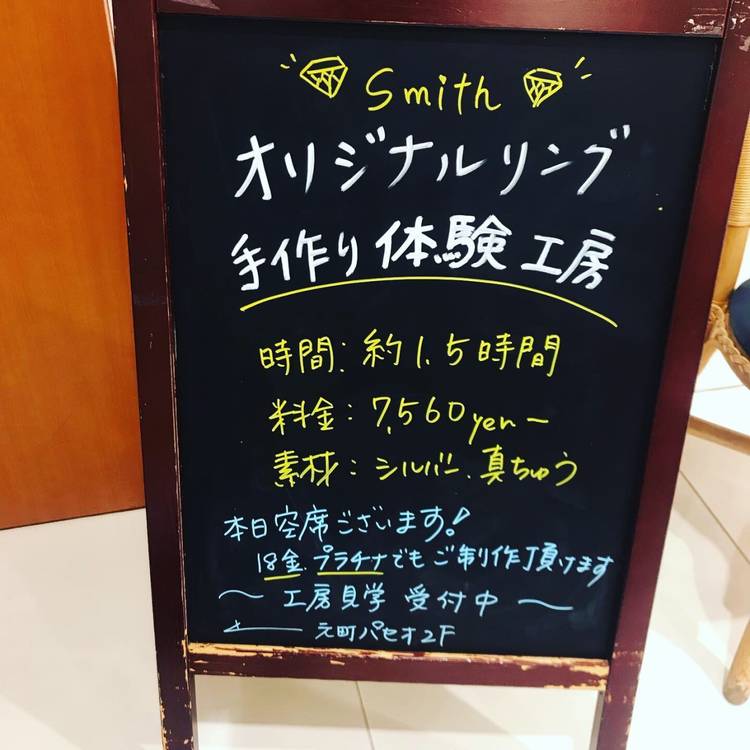 Smith
オリジナルリング
手作り体験工房
時間：約1.5時間
料金：7,560yenー
素材：シルバー、真ちゅう
本日空席ございます！
18金、プラチナでもご制作頂けます
〜 工房見学 受付中 〜
← 元町パセオ2F